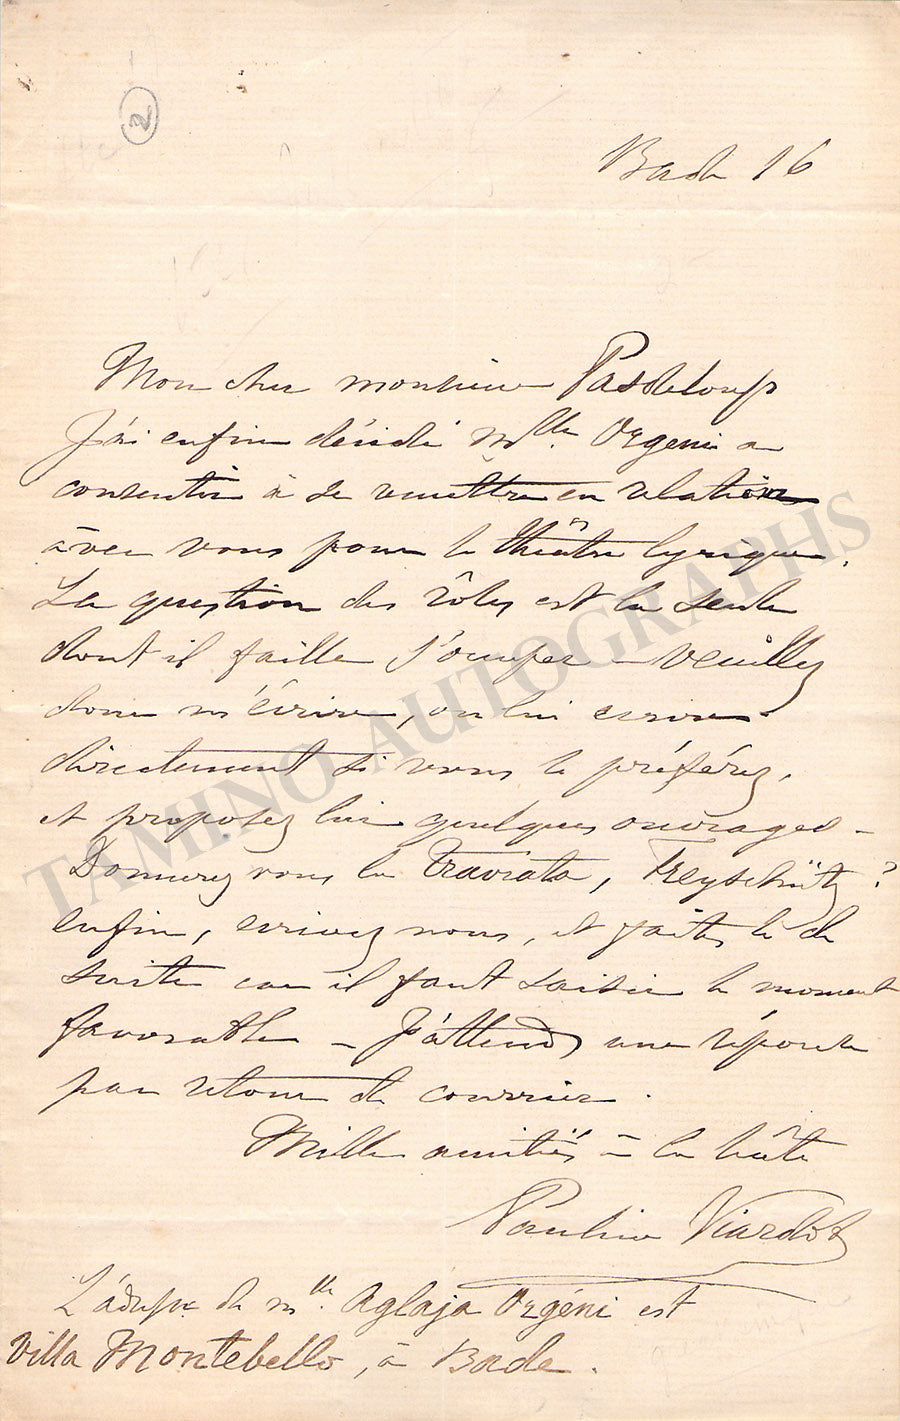 2
Bade 16
Mon cher monsieur Pasdeloup
J'ai enfin décidé Mlle. Orgeni a
consentir à se remettre en relations
avec vous pour le théâtre lyrique.
La question des rôles est la seule
dont il faille s'occuper – veuillez
donc m'écrire, ou lui écrire
directement si vous le préférez,
et proposez lui quelques ouvrages –
Donnerez vous la Traviata, Freyschütz ?
enfin, ecrivez nous, et faites le de
suite car il faut saisir le moment
favorable – J'attends une réponse
par retour de courrier.
Mille amitiés à la hâte
Pauline Viardot
L'adresse de Mlle. Aglaja Orgéni est
Villa Montebello, à Bade.
TAMINO AUTOGRAPHS